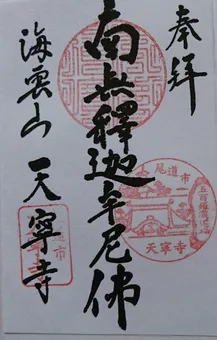 奉拝
南無釋迦牟尼佛
海雲山 天寧寺
尾道市
五百羅漢
天寧寺